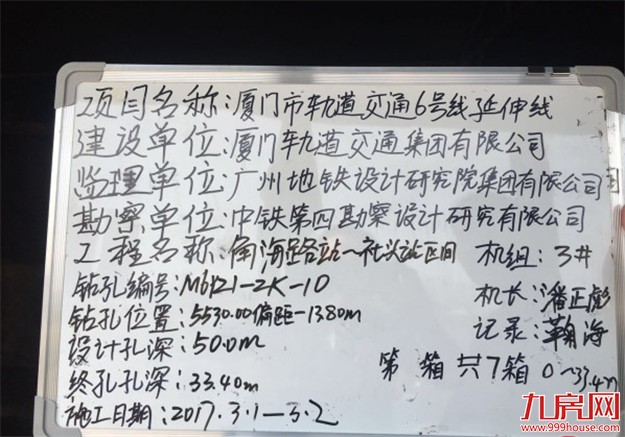 项目名称:厦门市轨道交通6号线延伸线
建设单位:厦门轨道交通集团有限公司
监理单位:广州地铁设计研究院集团有限公司司
勘察单位:中铁第四勘察设计研究有限公司
工程名称:角海路站~社头站区间 机组:3#
钻孔编号:M6KZ1-ZK-10
机长:潘正彪
钻孔位置:5530.00偏距-1380m
记录:翰海
设计孔深:50.0m
第 箱共7箱 0~33.4m
终孔孔深:33.40m
施工日期:2017.3.1-3.2
九房网
www.999house.com